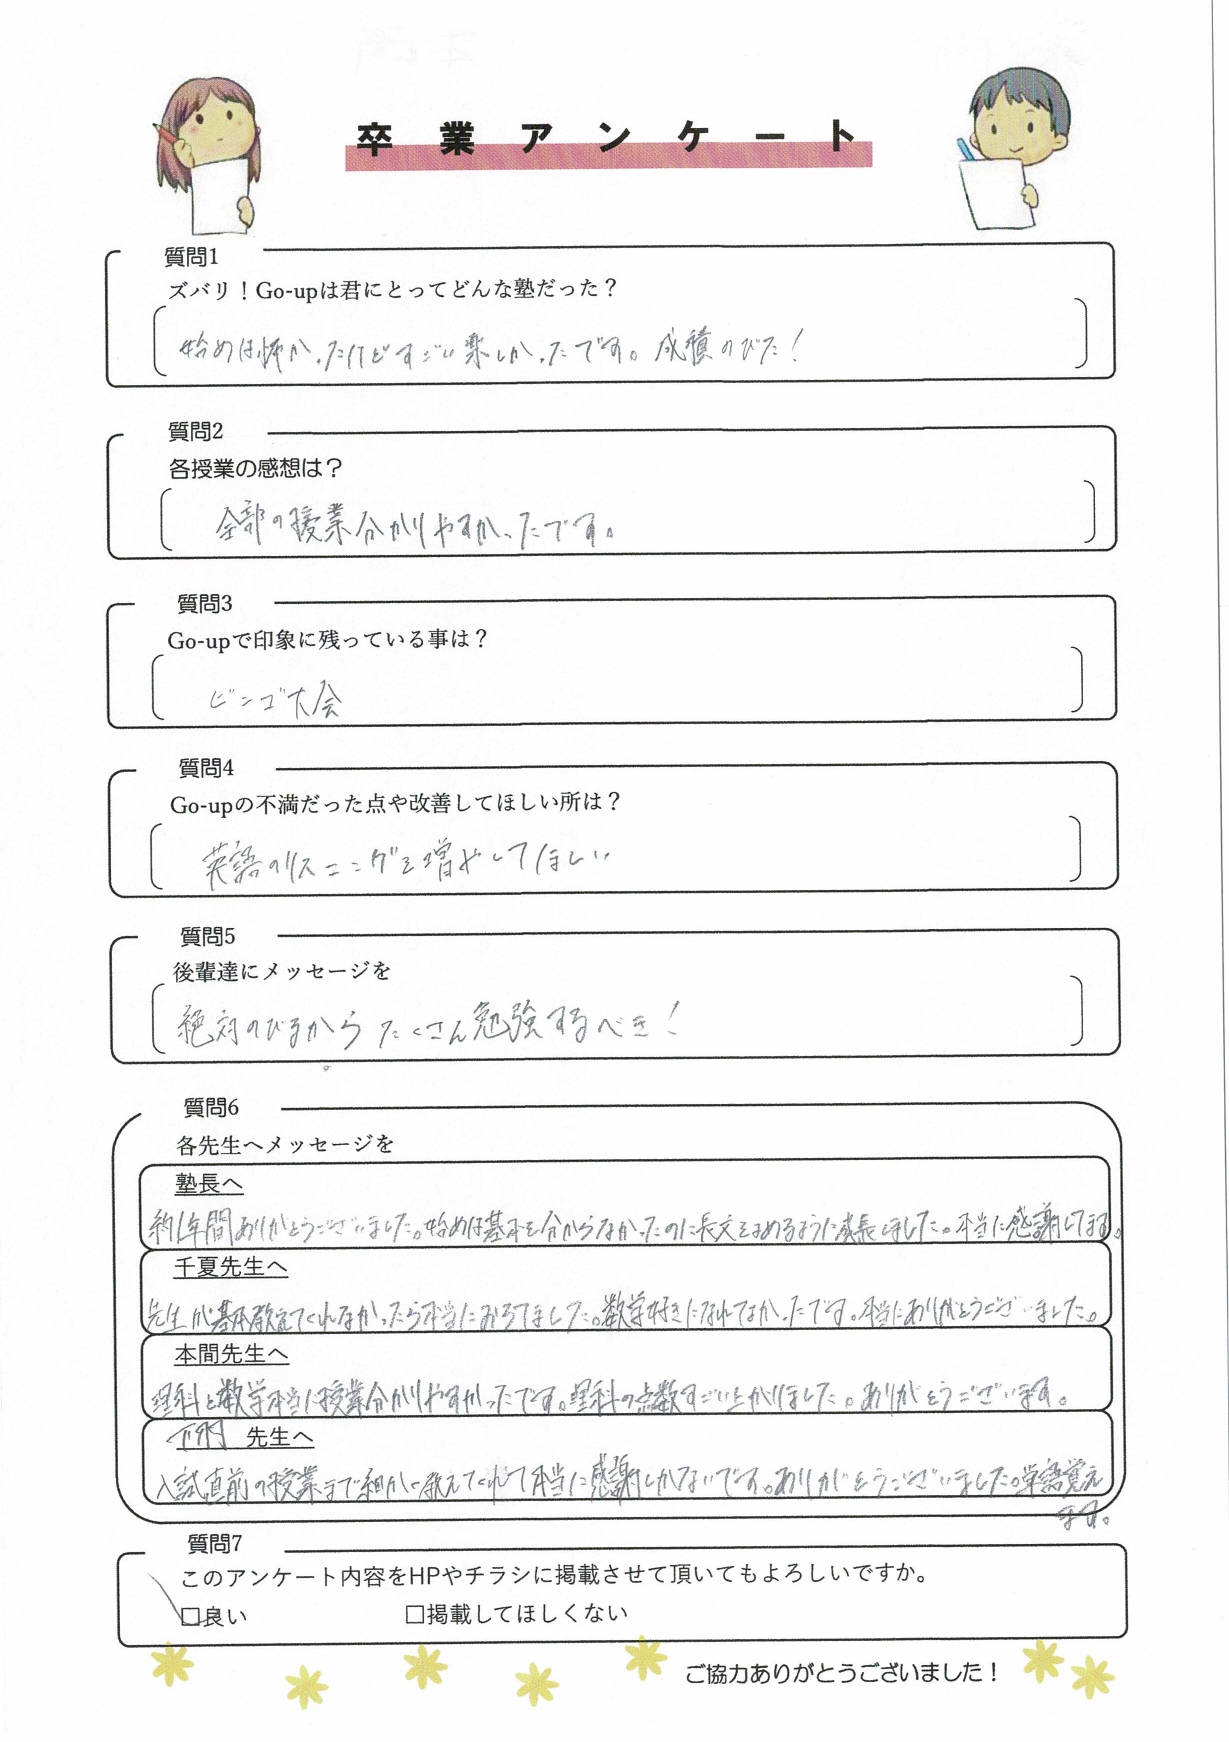 卒業アンケート
質問1
ズバリ！Go-upは君にとってどんな塾だった？
始めは怖かったけどすごい楽しかったです。成積のびた！
質問2
各授業の感想は？
全部の授業分かりやすかったです。
質問3
Go-upで印象に残っている事は？
ビンゴ大会
質問4
Go-upの不満だった点や改善してほしい所は？
英語のリスニングを増やしてほしい
質問5
後輩達にメッセージを
絶対のびるから たくさん勉強するべき！
質問6
各先生へメッセージを
塾長へ
約1年間ありがとうございました。始めは基本も分からなかったのに長文をよめるように成長しました。本当に感謝してます。
千夏先生へ
先生が基本教えてくれなかったら本当におちてました。数学好きになれてなかったです。本当にありがとうございました。
本間先生へ
理科と数学本当に授業分かりやすかったです。理科の点数すごい上がりました。ありがとうございます。
先生へ
入試直前の授業まで細かく教えてくれて本当に感謝しかないです。ありがとうございました。単語覚え
ます。
質問7
このアンケート内容をHPやチラシに掲載させて頂いてもよろしいですか。
□良い □掲載してほしくない
ご協力ありがとうございました！